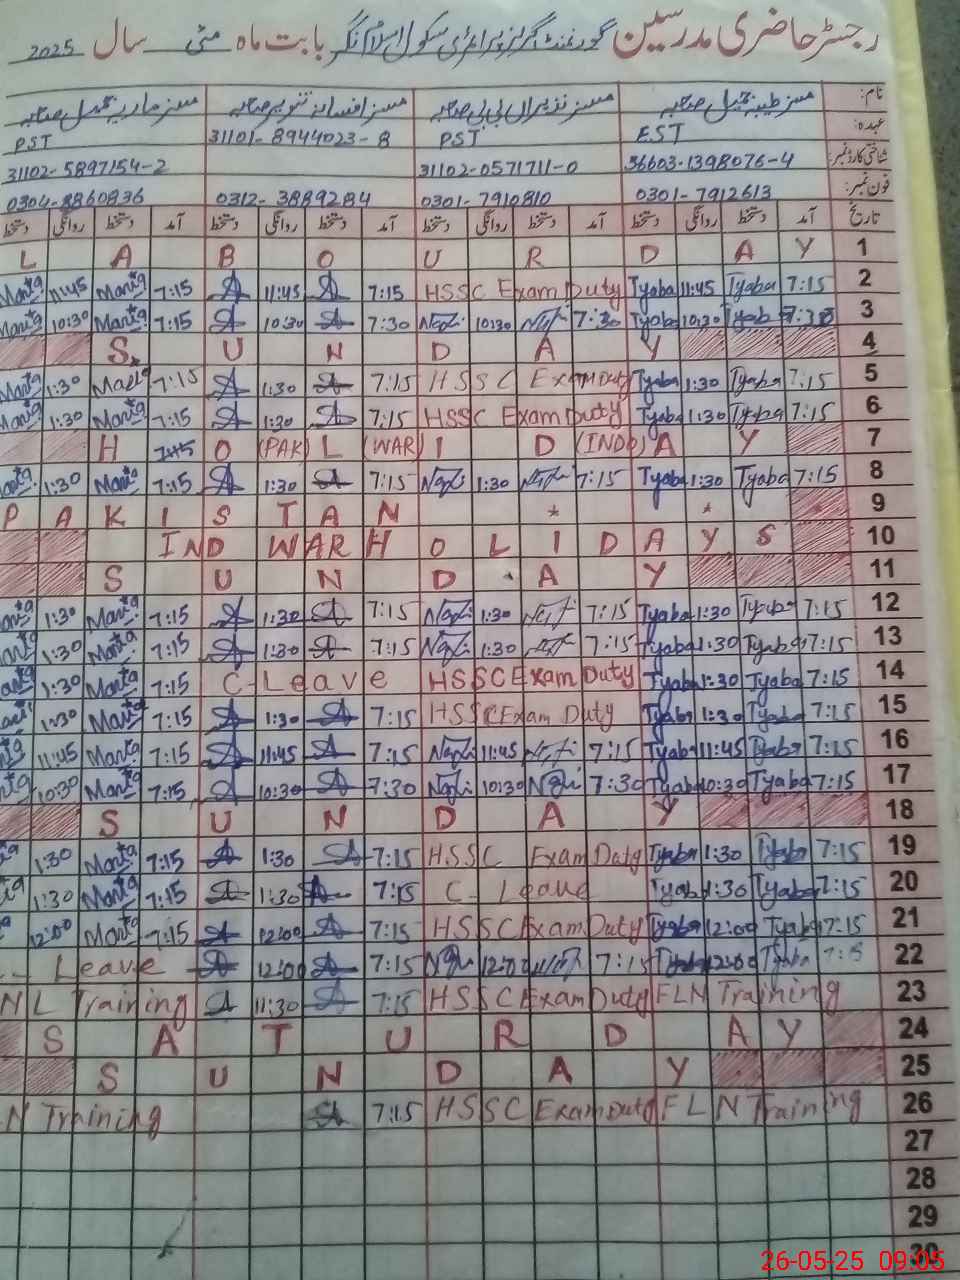 رجسٹر حاضری مدرسین گورنمنٹ گرلز پرائمری سکول اسلام نگر بابت ماہ مئی سال 2025
نام: مسز طیبہ جمیل صاحبہ مسز نذیراں بی بی صاحبہ مسز افسانہ تنویر صاحبہ مسز ماریہ جمیل صاحبہ
عہدہ: EST PST 31101-8944023-8 PST
شناختی کارڈ نمبر: 36603-1398076-4 31102-0571711-0 31102-5897154-2
فون نمبر: 0301-7912613 0301-7910810 0312-3889284 0304-8860836
تاریخ آمد دستخط روانگی دستخط آمد دستخط روانگی دستخط آمد دستخط روانگی دستخط آمد دستخط روانگی دستخط
L A B O U R D A Y 1
Maria 11:45 Maria 7:15 A 11:45 A 7:15 HSSC Exam Duty Tyaba 11:45 Tyaba 7:15 2
Maria 10:30 Maria 7:15 A 10:30 A 7:30 10:30 7:30 Tyaba 10:30 Tyab 7:30 3
S U N D A Y 4
Maria 1:30 Maria 7:15 A 1:30 A 7:15 HSSC Exam Duty Tyaba 1:30 Tyaba 7:15 5
Maria 1:30 Maria 7:15 A 1:30 A 7:15 HSSC Exam Duty Tyaba 1:30 Tyaba 7:15 6
H O (PAK) L (WAR) I D (INDO) A Y 7
1:30 Maria 7:15 A 1:30 A 7:15 1:30 7:15 Tyaba 1:30 Tyaba 7:15 8
P A K I S T A N * * 9
IND WAR H O L I D A Y S 10
S U N D A Y 11
1:30 Maria 7:15 A 1:30 A 7:15 1:30 7:15 Tyaba 1:30 Tyaba 7:15 12
1:30 Maria 7:15 A 1:30 A 7:15 1:30 7:15 Tyaba 1:30 Tyaba 7:15 13
1:30 Maria 7:15 C-Leave HSSC Exam Duty Tyaba 1:30 Tyaba 7:15 14
1:30 Maria 7:15 A 1:30 A 7:15 HSSC Exam Duty Tyaba 1:30 Tyaba 7:15 15
11:45 Maria 7:15 A 11:45 A 7:15 11:45 7:15 Tyaba 11:45 Tyaba 7:15 16
10:30 Maria 7:15 A 10:30 A 7:30 10:30 7:30 Tyaba 10:30 Tyaba 7:15 17
S U N D A Y 18
1:30 Maria 7:15 A 1:30 A 7:15 HSSC Exam Duty Tyaba 1:30 Tyaba 7:15 19
1:30 Maria 7:15 A 1:30 A 7:15 C- Leave Tyab 1:30 Tyaba 7:15 20
12:00 Maria 7:15 A 12:00 A 7:15 HSSC Exam Duty Tyaba 12:00 Tyaba 7:15 21
- Leave A 12:00 A 7:15 12:00 7:15 Tyaba 12:00 Tyaba 7:15 22
N L Training A 11:30 A 7:15 HSSC Exam Duty FLN Training 23
S A T U R D A Y 24
S U N D A Y 25
N Training A 7:15 HSSC Exam Duty FLN Training 26
27
28
29
30
26-05-25 09:05